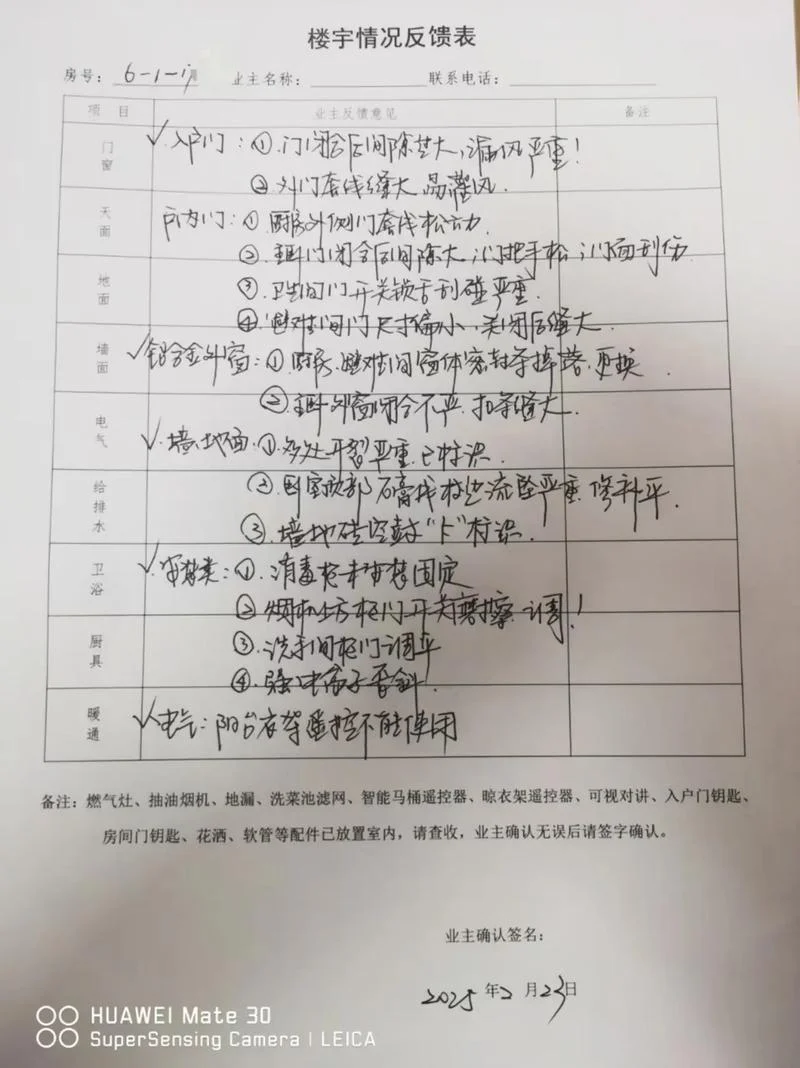 楼宇情况反馈表
房号： 6-1-1 业主名称： 联系电话：
项 目 业主反馈意见 备注
门窗 ✓入户门：①门闭合后间隙大，漏风严重！
②外门套线缝大 易灌风.
天面 户内门：①厨房外侧门套线松动
②主卧门闭合后间隙大，门把手松，门面刮伤
地面 ③卫生间门开关锁舌刮碰严重.
④ 门尺寸偏小，关闭后缝大.
墙面 ✓铝合金外窗：①厨房、 窗体密封条掉落 更换
②主卧外窗闭合不严 扣条缝大.
电气 ✓墙、地面①多处开裂严重 已标识.
给排水 ②卧室 石膏线 流坠严重 修补平.
③墙地砖空鼓“卡”标识.
卫浴 ✓ 类：①消毒柜未 固定
②烟机上方柜门开关磨擦 调！
厨具 ③洗手间柜门调平
④强电 子歪斜.
暖通 ✓电气：阳台衣架遥控不能使用
备注：燃气灶、抽油烟机、地漏、洗菜池滤网、智能马桶遥控器、晾衣架遥控器、可视对讲、入户门钥匙、
房间门钥匙、花洒、软管等配件已放置室内，请查收，业主确认无误后请签字确认。
业主确认签名：
2025年2月23日
HUAWEI Mate 30
SuperSensing Camera | LEICA